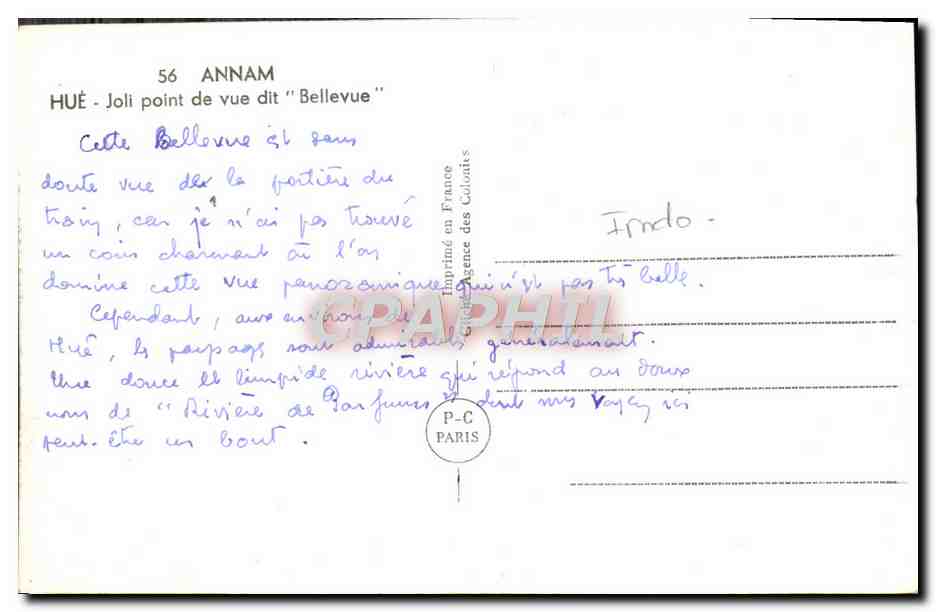 56 ANNAM
HUÉ - Joli point de vue dit "Bellevue"
Cette Bellevue est sans
doute vue de la portière du
train, car je n'ai pas trouvé
un coin charmant où l'on
domine cette vue panoramique qui n'est pas très belle.
Cependant, aux environs de
Hué, les paysages sont admirables généralement.
Une douce et limpide rivière qui répond au doux
nom de "Rivière des Parfums" dont vous voyez ici
peut-être un bout.
Imprimé en France
Cliché Agence des Colonies
P-C
PARIS
Indo -
CPAPHIL